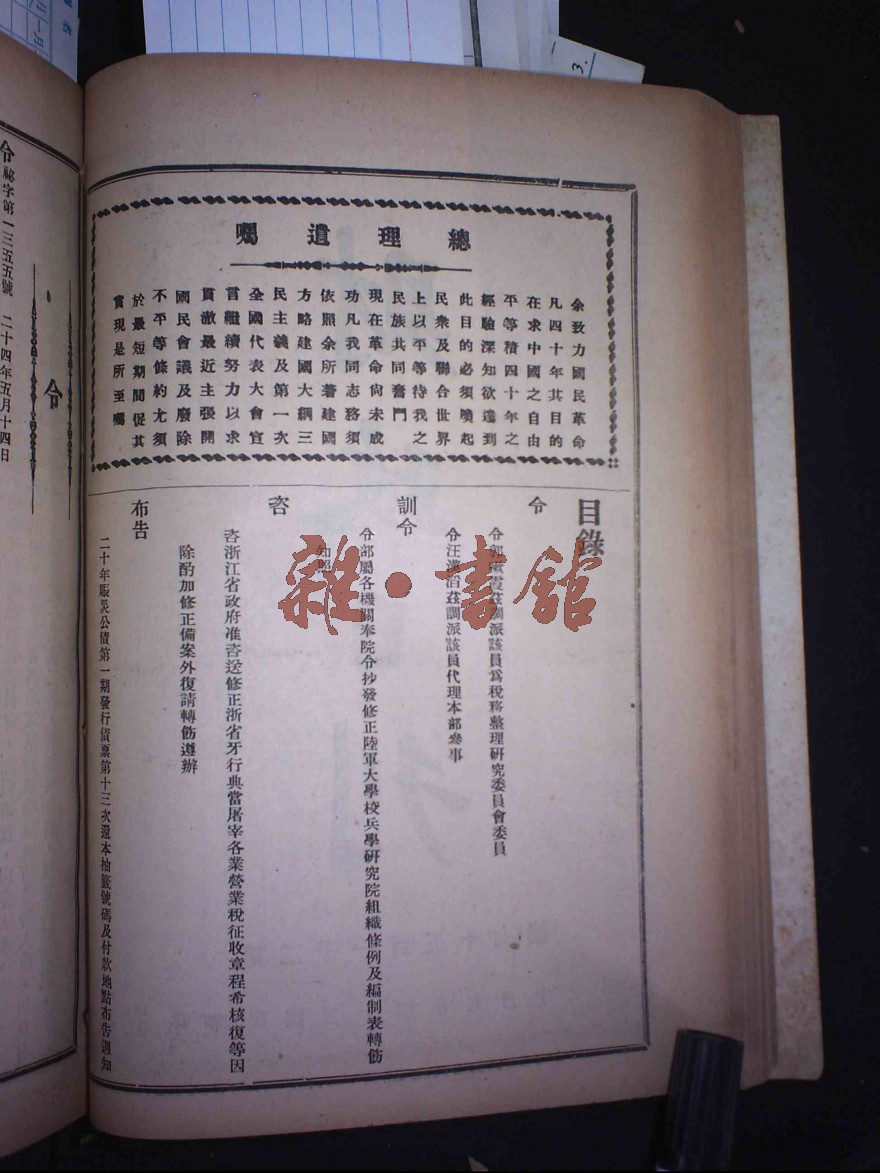 3.
總理遺囑
余致力國民革命
凡四十年其目的
在求中國之自由
平等積四十年之
經驗深知欲達到
此目的必須喚起
民衆及聯合世界
上以平等待我之
民族共同奮鬥
現在革命尙未成
功凡我同志務須
依照余所著建國
方略建國大綱三
民主義及第一次
全國代表大會宣
言繼續努力以求
貫澈最近主張開
國民會議及廢除
不平等條約尤須
於最短期間促其
實現是所至囑
目錄
令
令 霞茲調派該員爲稅務整理硏究委員會委員
令汪漢滔茲調派該員代理本部參事
訓令
令部屬各機關奉院令抄發修正陸軍大學校兵學硏究院組織條例及編制表轉飭
知照
咨
咨浙江省政府准咨送修正浙省牙行典當屠宰各業營業稅征收章程希核復等因
除酌加修正備案外復請轉飭遵辦
布告
二十年賑災公債第一期發行債票第十三次還本抽籤號碼及付款地點布告週知
雜·書館
令
令 祕字第一三五五號 二十四年五月十四日